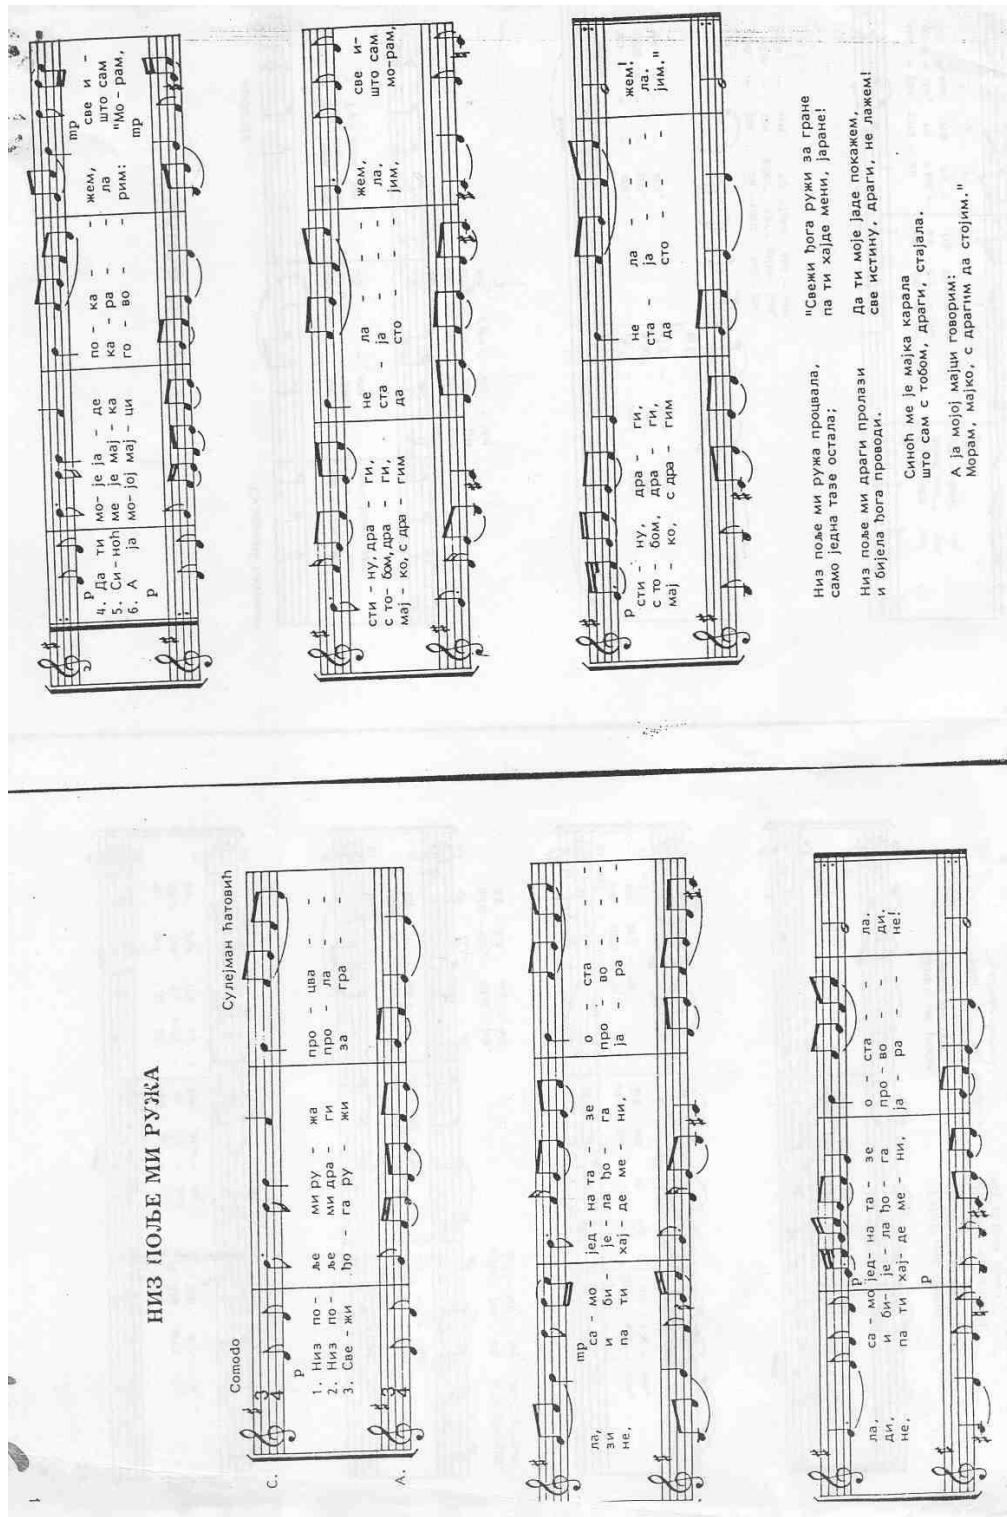 1
НИЗ ПОЉЕ МИ РУЖА
Сулејман Ћатовић
Comodo
С.
3 4
p
1. Низ по - ље ми ру - жа про - цва - - -
2. Низ по - ље ми дра - ги про - ла - - -
3. Све - жи ђо - га ру - жи за гра - - -
А.
3 4
mp
ла, са - мо јед - на та - зе о - ста - - -
зи и би - је - ла ђо - га про - во - - -
не, па ти хај - де ме - ни, ја - ра - - -
p
ла, са - мо јед - на та - зе о - ста - - ла.
ди, и би - је - ла ђо - га про - во - - ди.
не, па ти хај - де ме - ни, ја - ра - - не!
p
2
p mp
4. Да ти мо - је ја - де по - ка - - жем, све и -
5. Си - ноћ ме је мај - ка ка - ра - - ла што сам
6. А ја мо - јој мај - ци го - во - - рим: "Мо - рам,
p mp
сти - ну, дра - ги, не ла - - - жем, све и -
с то - бом, дра - ги, ста - ја - - - ла, што сам
мај - ко, с дра - гим да сто - - - јим, мо - рам,
p
сти - ну, дра - ги, не - ла - - - жем!
с то - бом, дра - ги, ста ја - - - ла.
мај - ко, с дра - гим да сто - - - јим."
Низ поље ми ружа процвала,
само једна тазе остала;
Низ поље ми драги пролази
и бијела ђога проводи.
"Свежи ђога ружи за гране
па ти хајде мени, јаране!
Да ти моје јаде покажем,
све истину, драги, не лажем!
Синоћ ме је мајка карала
што сам с тобом, драги, стајала.
А ја мојој мајци говорим:
Морам, мајко, с драгим да стојим."